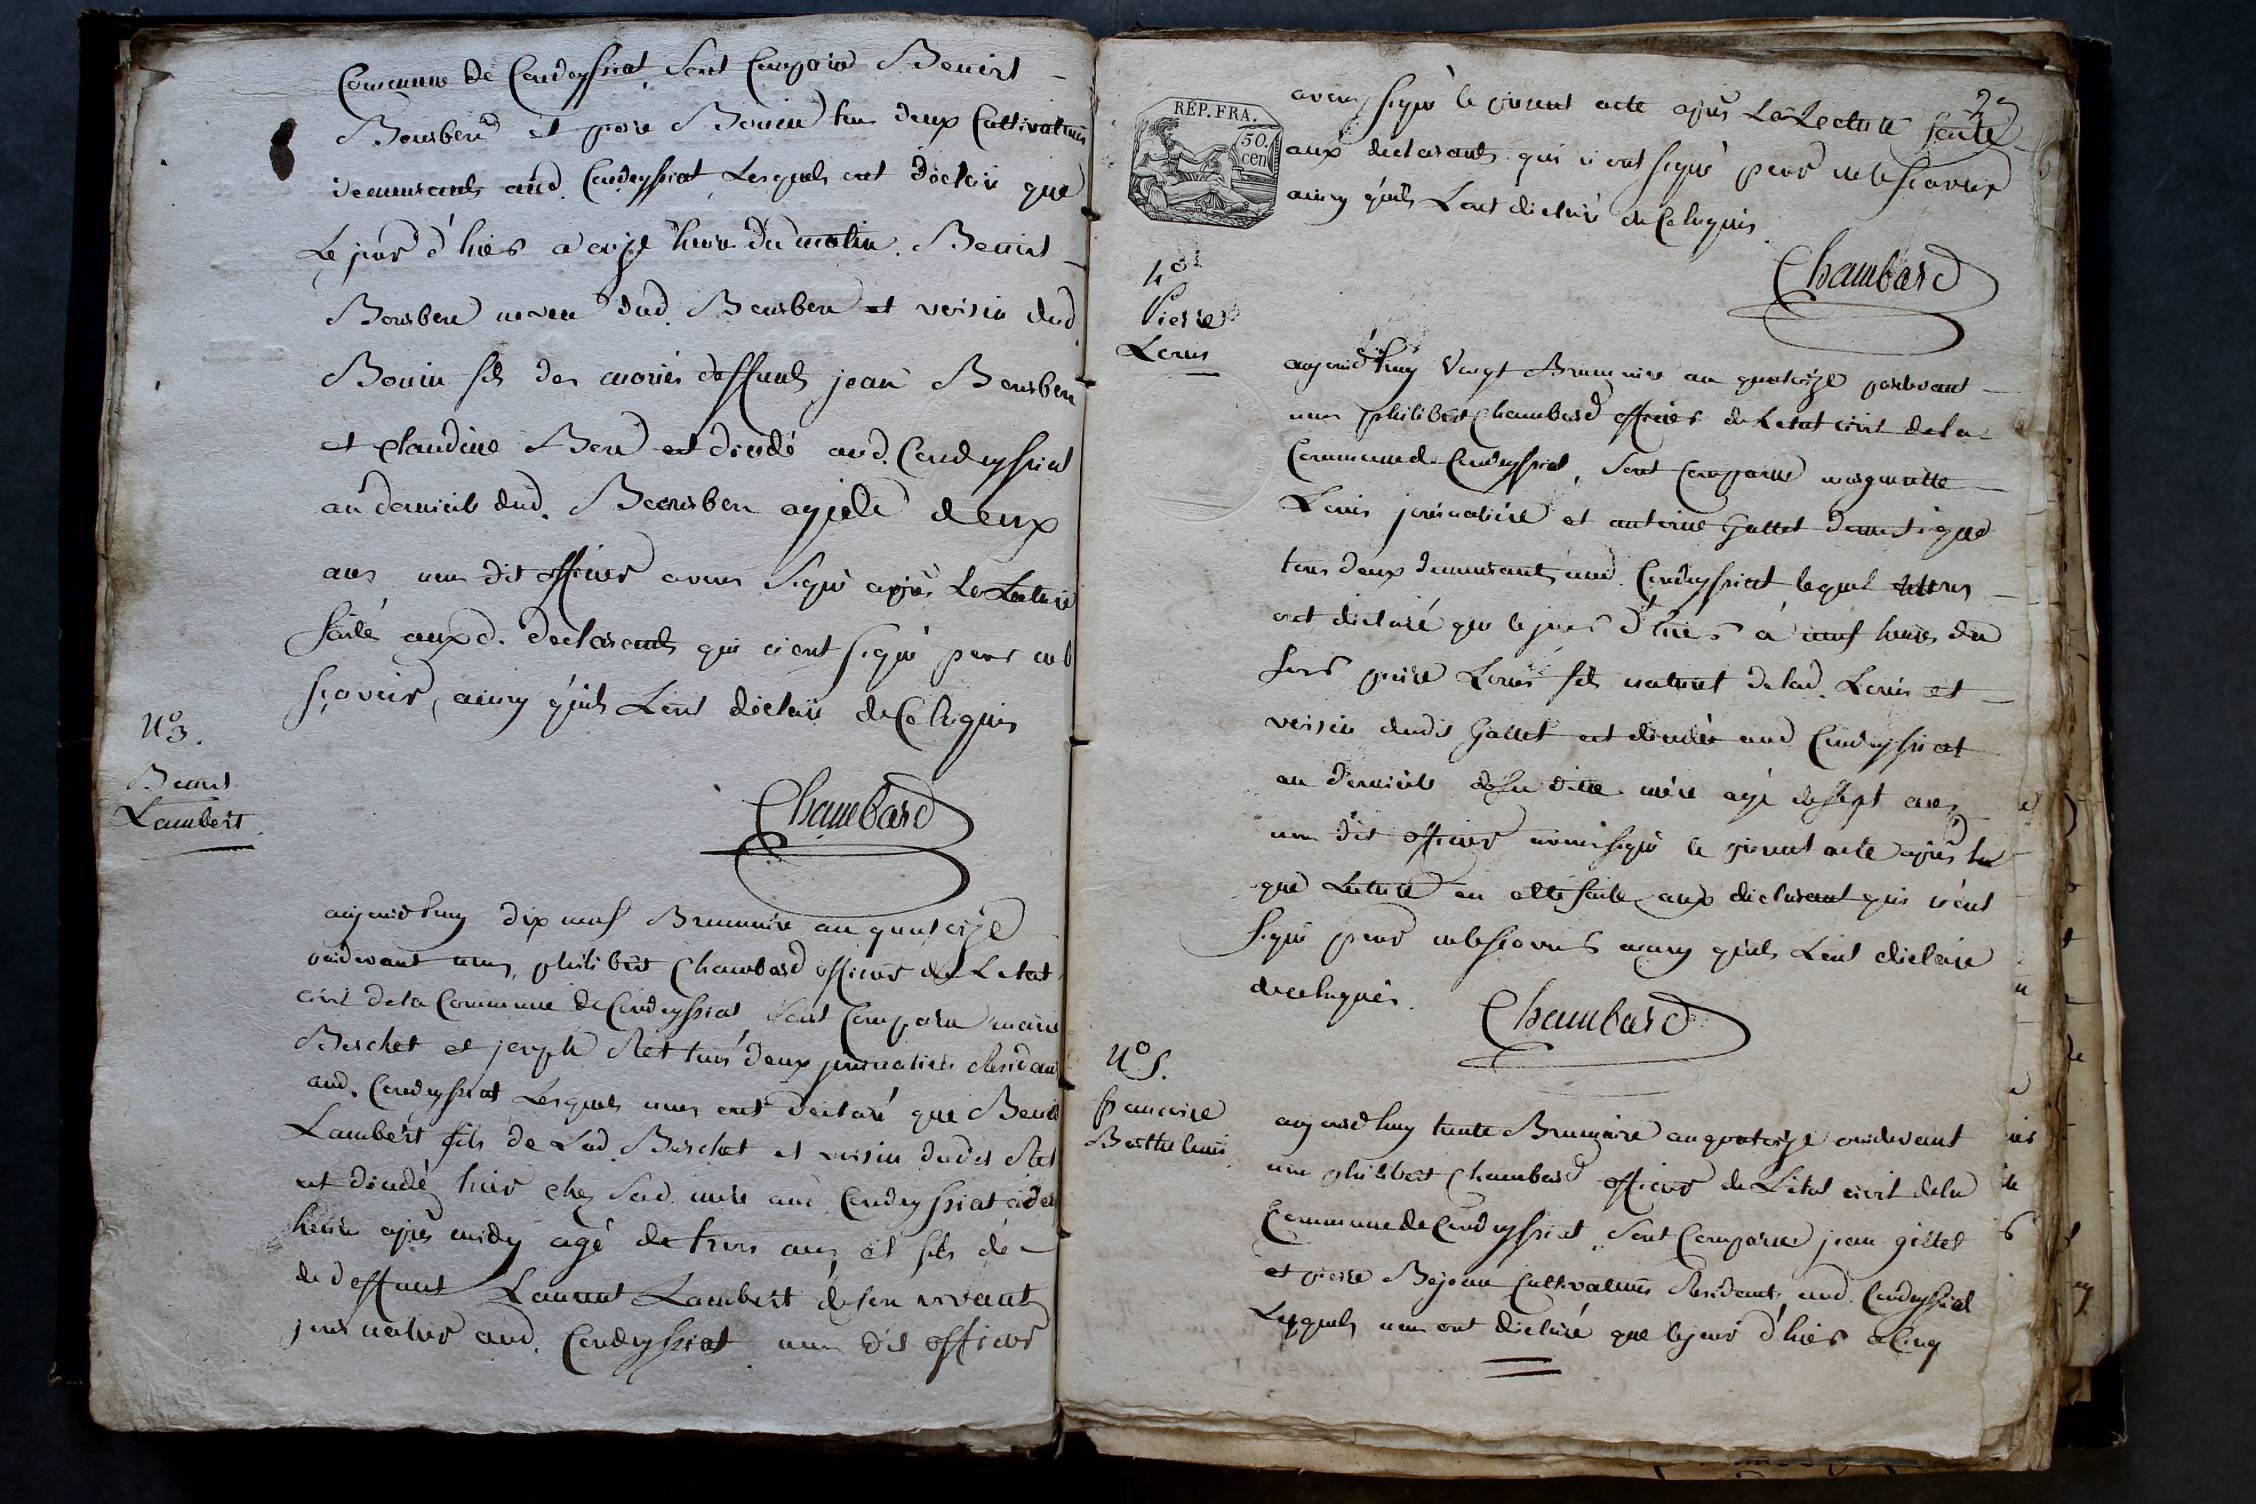 Commune de Condeyssiat sont comparu Benoist
Bourben et pierre Bouin tous deux Cultivateurs
demeurants aud. Condeyssiat Lesquels ont déclaré que
Le jour d'hier a onze heure du matin. Benoist
Bourben neveu dud. Bourben et voisin dud
Bouin fils des mariés deffunts jean Bourben
et Claudine est décédé aud. Condeyssiat
au domicile dud. Bourben agé de deux
ans nous dit officier avons signé après La Lecture
faite auxd. declarants qui n'ont signé pour ne le
sçavoir, ainsy qu'ils L'ont déclaré de Ce Requis
Chambard
N° 3.
Benoist
Lambert
aujourd'huy dix neuf Brumaire an quatorze
pardevant nous, philibert Chambard officier de L'etat
civil de la Commune de Condeyssiat sont Comparu marie
Berchet et joseph Ret tous deux journaliers Residant
aud. Condeyssiat Lesquels nous ont déclaré que Benoit
Lambert fils de Lad. Berchet et voisin dudit Ret
est décédé hier chez sad. mere aud Condeyssiat à deux
heure après midy agé de trois ans et fils de
de deffunt Laurent Lambert de son vivant
journalier aud. Condeyssiat nous dit officier
REP. FRA.
50.
cen
avons signé le present acte après La Lecture faite
aux declarants qui n'ont signé pour ne le sçavoir
ainsy qu'ils L'ont déclaré de Ce Requis
Chambard
4°
Pierre
Louis
aujourd'huy Vingt Brumaire an quatorze pardevant
nous philibert Chambard officier de L'etat civil de la
Commune de Condeyssiat, sont Comparus marguerite
Louis journalière et antoine Gallet domestique
tous deux demeurants aud. Condeyssiat lequel
ont déclaré que le jour d'hier à neuf heures du
soir pierre Louis fils naturel de lad. Louis et
voisin dudit Gallet est décédé aud Condeyssiat
au domicile de sa ditte mère agé de sept ans
nous dit officier avons signé le present acte après
que Lecture en a été faite aux déclarant qui n'ont
signé pour ne le sçavoir ainsy qu'ils L'ont déclaré
de ce Requis.
Chambard
N° 5.
francoise
Barthelemi
aujourd'huy trente Brumaire an quatorze pardevant
nous philibert Chambard officier de L'etat civil de la
Commune de Condeyssiat, sont Comparus jean gillet
et pierre Bejean Cultivateurs Residants aud. Condeyssiat
Lesquels nous ont déclaré que le jour d'hier a Cinq